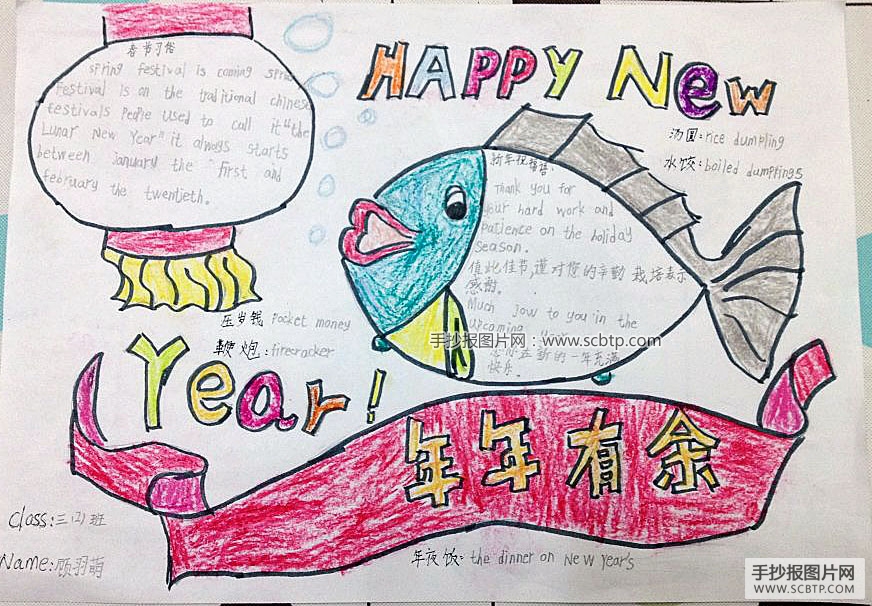 春节习俗
spring festival is coming spring
festival is on the traditional chinese
festivals People used to call it "the
Lunar New Year" it always starts
between January the first and
february the twentieth.
HAPPY New
汤圆:rice dumpling
水饺:boiled dumplings
新年祝福语:
Thank you for
your hard work and
patience on the holiday
season.
值此佳节,谨对您的辛勤栽培表示
感谢。
Much Jow to you in the
upcoming
手抄报图片网:www.scbtp.com
新的一年充满
快乐。
压岁钱 Pocket money
鞭炮:firecracker
Year!
年年有余
Class:三(2)班
Name:顾羽萌
年夜饭:the dinner on New Year's
手抄报图片网
WWW.SCBTP.COM